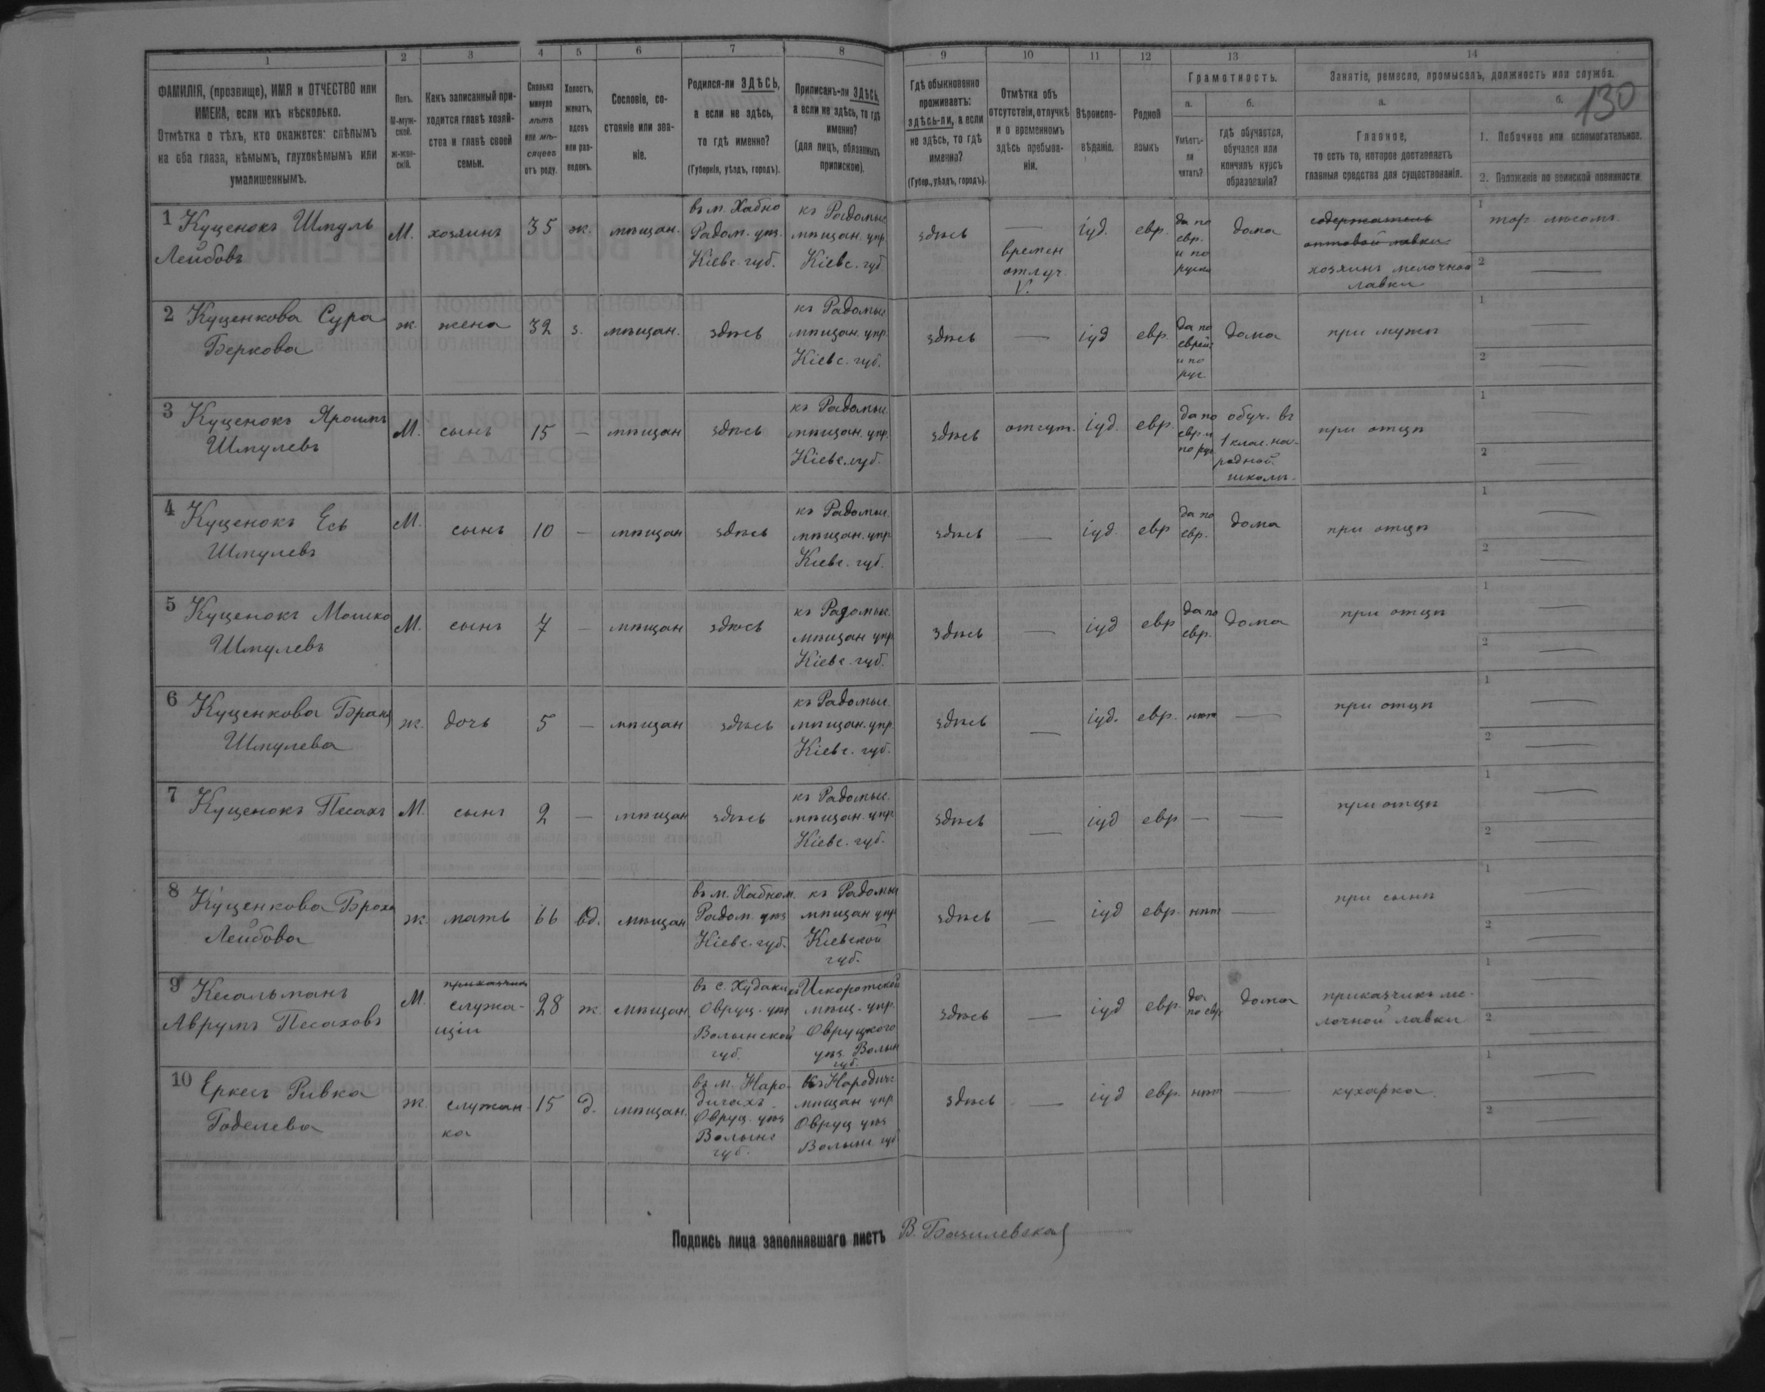 130
1
2
3
4
5
6
7
8
9
10
11
12
13
14
ФАМИЛІЯ, (прозвище), ИМЯ и ОТЧЕСТВО или
ИМЕНА, если ихъ нѣсколько.
Отмѣтка о тѣхъ, кто окажется: слѣпымъ
на оба глаза, нѣмымъ, глухонѣмымъ или
умалишеннымъ.
Полъ.
М-муж-
ской.
Ж-жен-
скій.
Какъ записанный при-
ходится главѣ хозяй-
ства и главѣ своей
семьи.
Сколько
минуло
лѣтъ
или мѣ-
сяцевъ
отъ роду.
Холостъ,
женатъ,
вдовъ
или раз-
веденъ.
Сословіе, со-
стояніе или зва-
ніе.
Родился-ли ЗДѢСЬ,
а если не здѣсь,
то гдѣ именно?
(Губернія, уѣздъ, городъ).
Приписанъ-ли ЗДѢСЬ,
а если не здѣсь, то гдѣ
именно?
(для лицъ, обязанныхъ
припискою).
Гдѣ обыкновенно
проживаетъ:
здѣсь-ли, а если
не здѣсь, то гдѣ
именно?
(Губер., уѣздъ, городъ).
Отмѣтка объ
отсутствіи, отлучкѣ
и о временномъ
здѣсь пребыва-
ніи.
Вѣроиспо-
вѣданіе.
Родной
языкъ
Грамотность.
а.
Умѣетъ-
ли
читать?
б.
гдѣ обучается,
обучался или
кончилъ курсъ
образованія?
Занятіе, ремесло, промыселъ, должность или служба.
а.
Главное,
то есть то, которое доставляетъ
главныя средства для существованія.
б.
1. Побочное или вспомогательное.
2. Положеніе по воинской повинности
1 Куценокъ Шмуль
Лейбовъ
М. хозяинъ 35 ж. мѣщан.
въ м. Хабно
Радом. уѣз.
Кіевс. губ.
къ Радомыс
мѣщан. упр
Кіевс. губ
здѣсь
времен
отлуч
іуд. евр.
да по
евр.
и по
русски
дома
содержатель
оптовой лавки
хозяинъ мелочной
лавки
1 тор. лѣсомъ
2
2 Куценкова Сура
Беркова
ж. жена 32 з. мѣщан. здѣсь
къ Радомыс
мѣщан. упр.
Кіевс. губ.
здѣсь іуд евр.
да по
еврей
и по
рус
дома при мужѣ
1
2
3 Куценокъ Яроимъ
Шмулевъ
М. сынъ 15 — мѣщан здѣсь
къ Радомыс
мѣщан. упр.
Кіевс. губ.
здѣсь отсут. іуд. евр.
да по
евр и
по рус
обуч. въ
1 клас. на-
родной
школѣ.
при отцѣ
1
2
4 Куценокъ Есь
Шмулевъ
М. сынъ 10 — мѣщан здѣсь
къ Радомыс.
мѣщан. упр
Кіевс. губ.
здѣсь іуд. евр
да по
евр.
дома при отцѣ
1
2
5 Куценокъ Мошко
Шмулевъ
М. сынъ 7 — мѣщан здѣсь
къ Радомыс.
мѣщан упр
Кіевс. губ.
здѣсь іуд евр
да по
евр.
дома при отцѣ
1
2
6 Куценкова
Шмулева
ж. дочь 5 — мѣщан здѣсь
къ Радомыс.
мѣщан. упр.
Кіевс. губ.
здѣсь іуд. евр. нѣтъ при отцѣ
1
2
7 Куценокъ Песахъ
М. сынъ 2 — мѣщан здѣсь
къ Радомыс.
мѣщан. упр
Кіевс. губ.
здѣсь іуд евр — при отцѣ
1
2
8 Куценкова Броха
Лейбова
ж. мать 66 вд. мѣщан
въ м. Хабном
Радом. уѣз
Кіевс. губ.
къ Радомыс
мѣщан упр
Кіевской
губ.
здѣсь іуд евр. нѣтъ при сынѣ
1
2
9 Кесальманъ
Аврумъ Песаховъ
М.
приказчикъ
служа-
щій
28 ж. мѣщан
въ с. Худаки
Овруц. уѣз
Волынской
губ.
къ Искоротской
мѣщ. упр
Овруцкого
уѣз. Волын
губ.
здѣсь іуд евр.
да
по евр
дома
приказчикъ ме-
лочной лавки
1
2
10 Еркесъ Ривка
Годелева
ж.
служан-
ка
15 д. мѣщан.
въ м. Наро-
дичахъ
Овруц. уѣз
Волынс
губ.
къ Народич.
мѣщан упр
Овруц уѣз
Волын. губ
здѣсь іуд евр. нѣтъ кухарка.
1
2
Подпись лица заполнявшаго листъ В. Базилевская